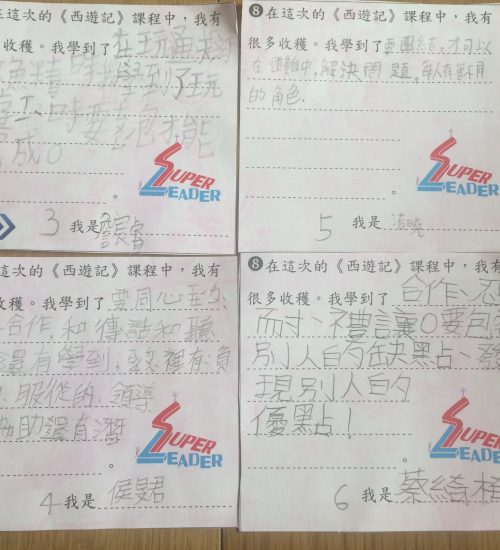 在這次的《西遊記》課程中，我有
收穫。我學到了在玩通天河
魚精時我學到了玩
時要才能
完成。
SUPER
LEADER
3 我是
❽在這次的《西遊記》課程中，我有
很多收穫。我學到了要團結，才可以
在困難中，解決問題。每人有著不同
的角色。
SUPER
LEADER
5 我是
這次的《西遊記》課程中，我有
收穫。我學到了要同心
合作，和傳話和聽
還有學到，裡有負
服從的、領導
協助還有
SUPER
LEADER
4 我是 侯旻君
❽在這次的《西遊記》課程中，我有
很多收穫。我學到了 合作、忍
而寸、禮讓。要包容
別人的缺點、發
現別人的
優點！
SUPER
LEADER
6 我是 蔡綺